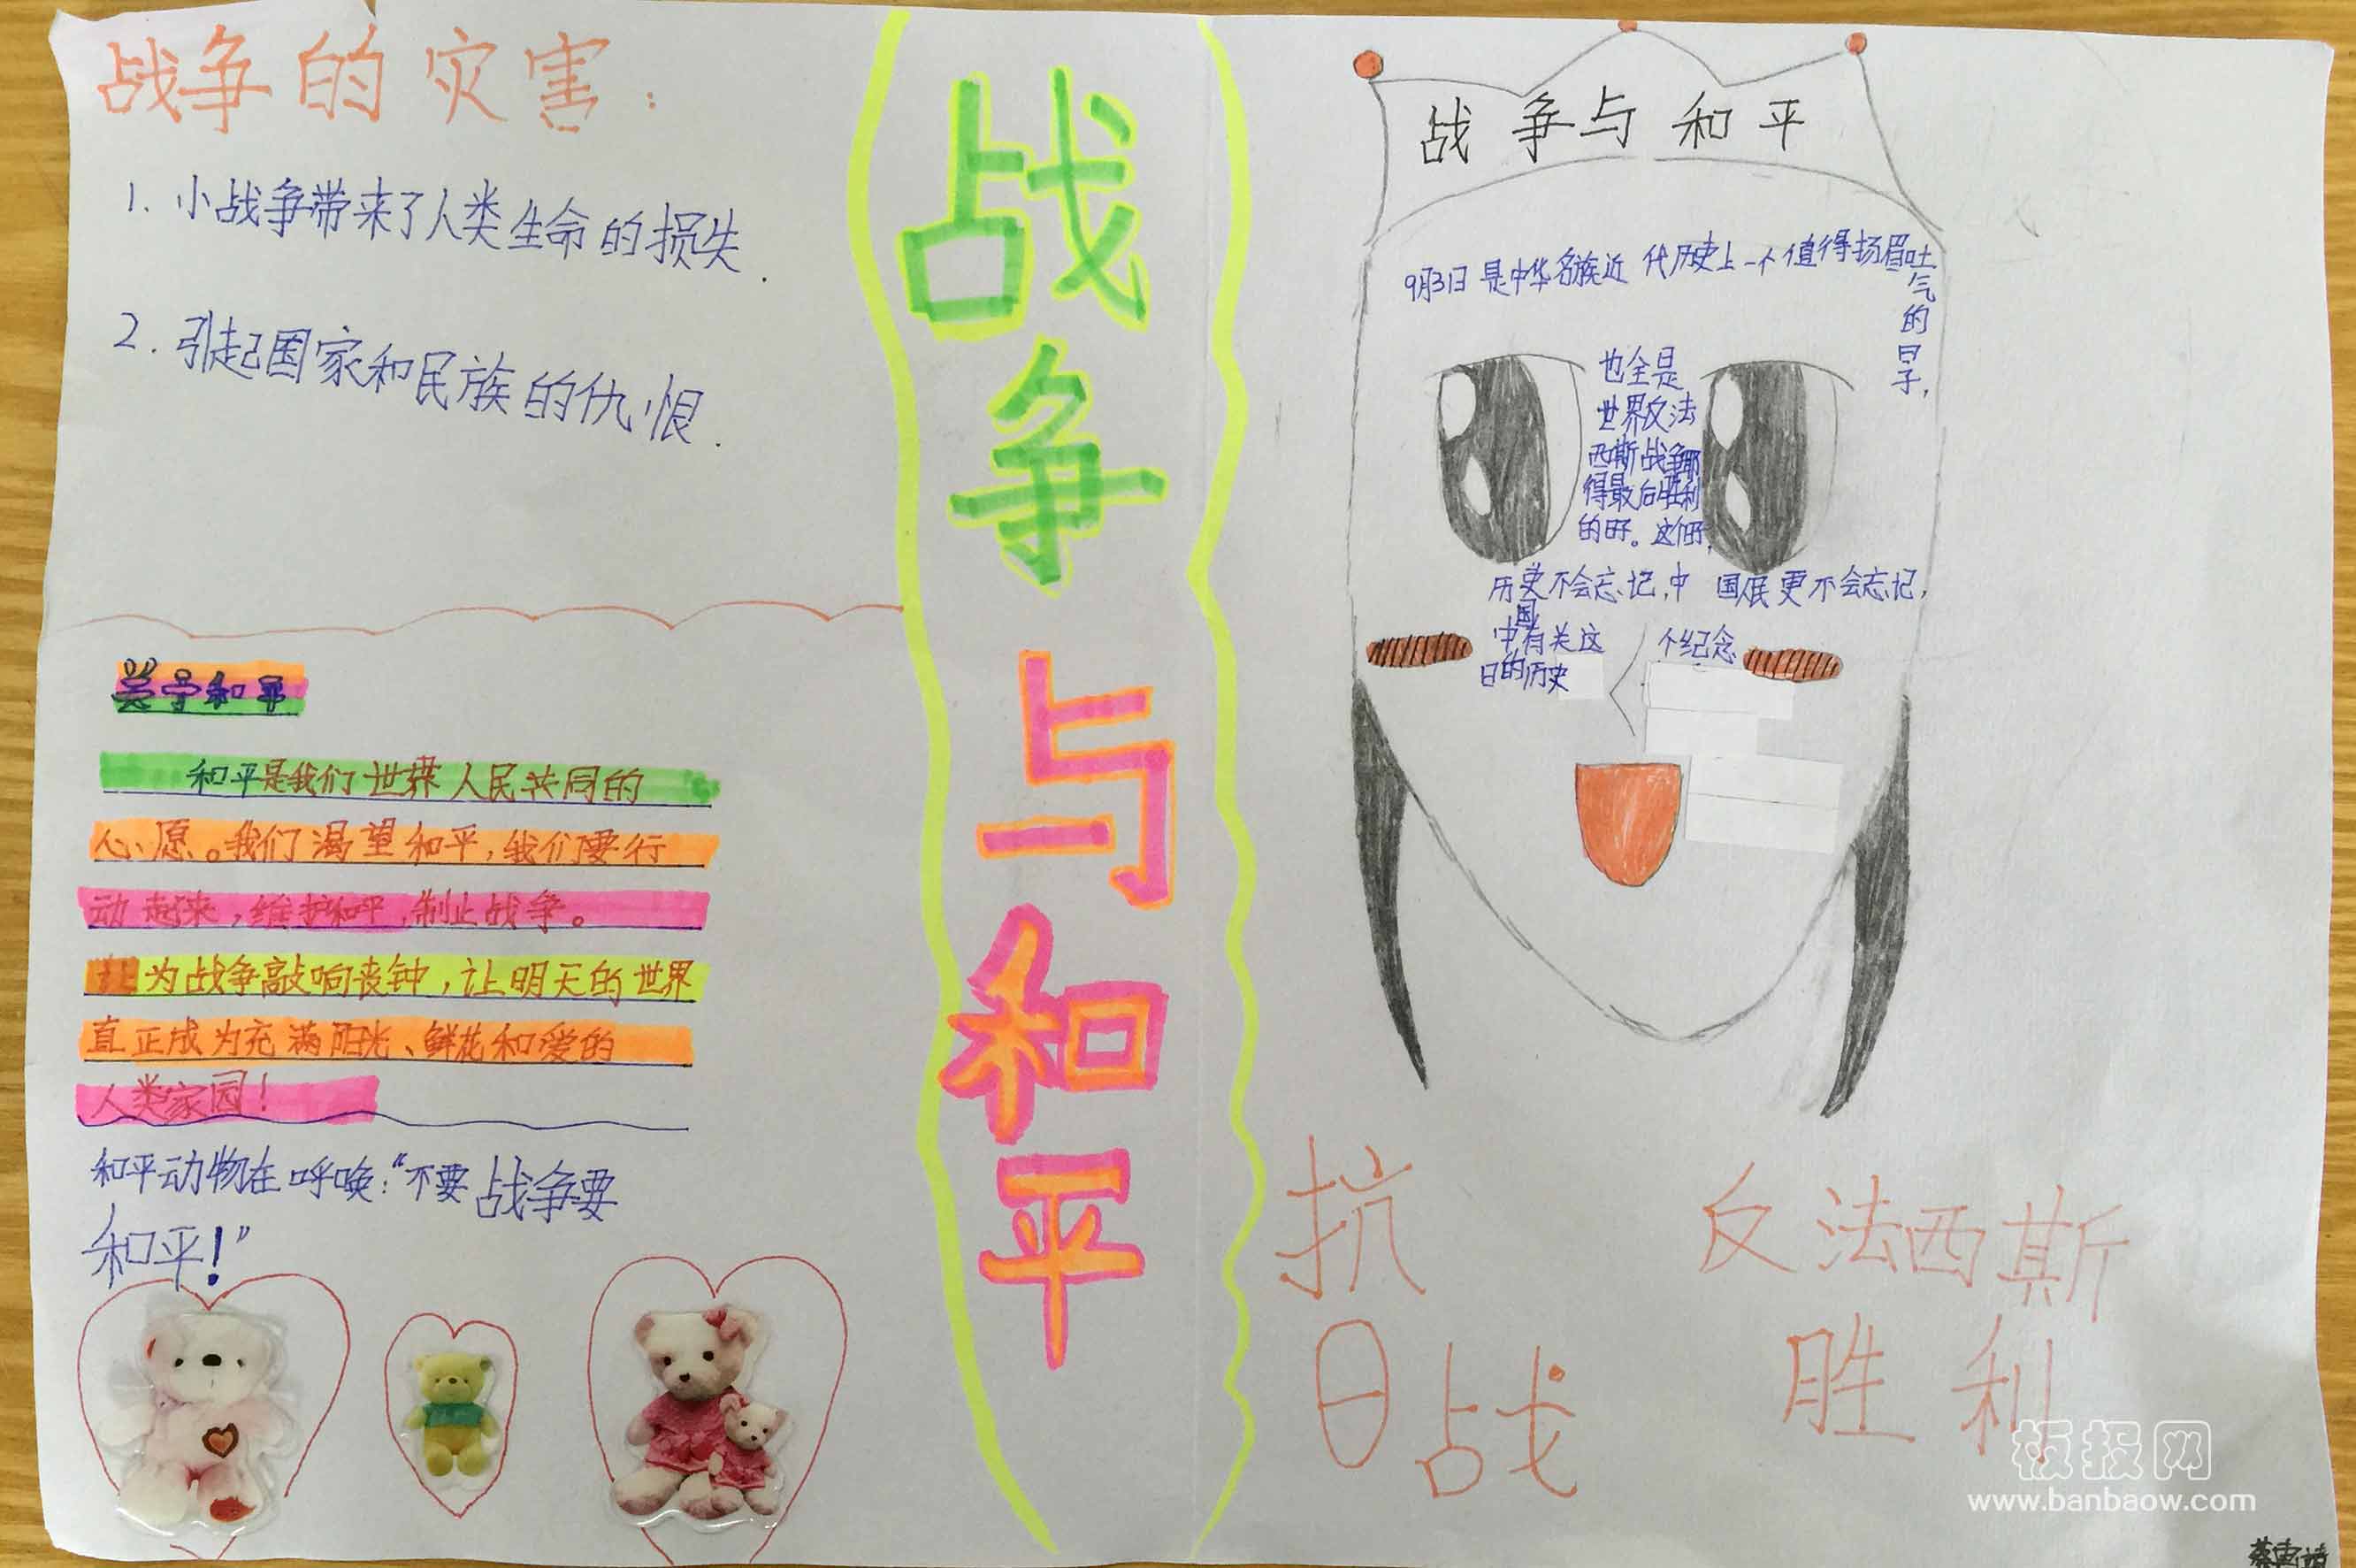 战争的灾害：
1. 小战争带来了人类生命的损失.
2. 引起国家和民族的仇恨.
关于和平
和平是我们世界人民共同的
心愿。我们渴望和平，我们要行
动起来，维护和平，制止战争。
为战争敲响丧钟，让明天的世界
直正成为充满阳光、鲜花和爱的
人类家园！
和平动物在呼唤：“不要战争要
和平！”
战争与和平
战争与和平
9月3日是中华名族近代历史上一个值得扬眉吐
气的日子，
也全是
世界反法
西斯战争那
得最后胜利
的日子。这个日子，
历史不会忘记，中国人民更不会忘记，
中国有关这个纪念
日的历史
抗
日战
反法西斯
胜利
板报网
www.banbaow.com